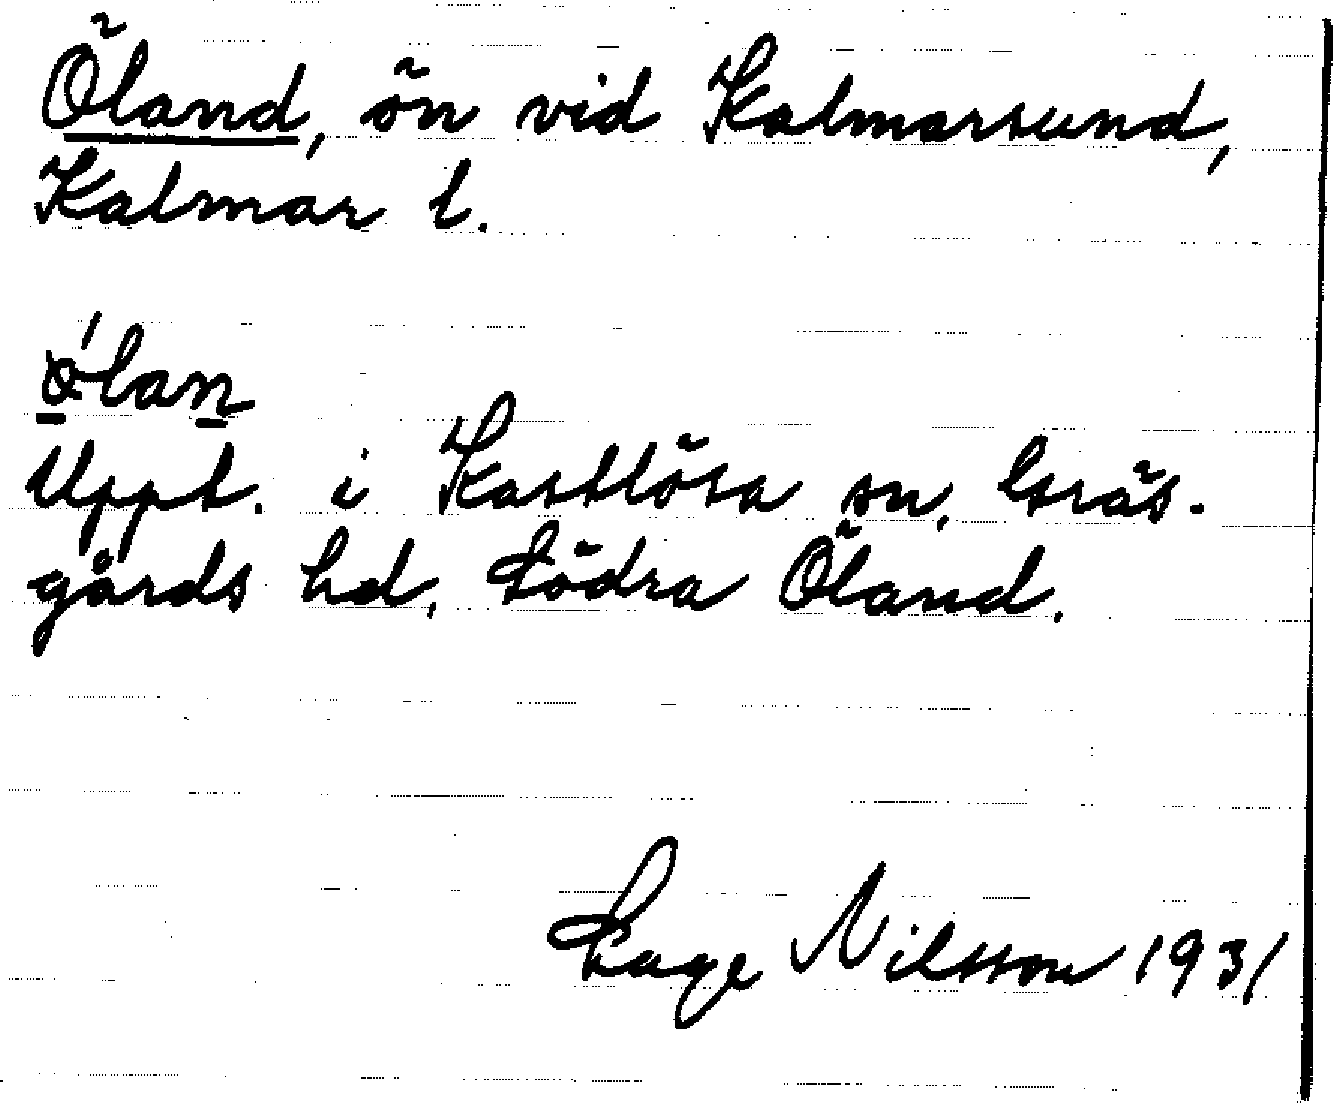 Öland, ön vid Kalmarsund,
Kalmar l.
ǿ̱laṉ
Uppt. i Kastlösa sn, Gräs-
gårds hd, Södra Öland.
Sage Nilsson 1931